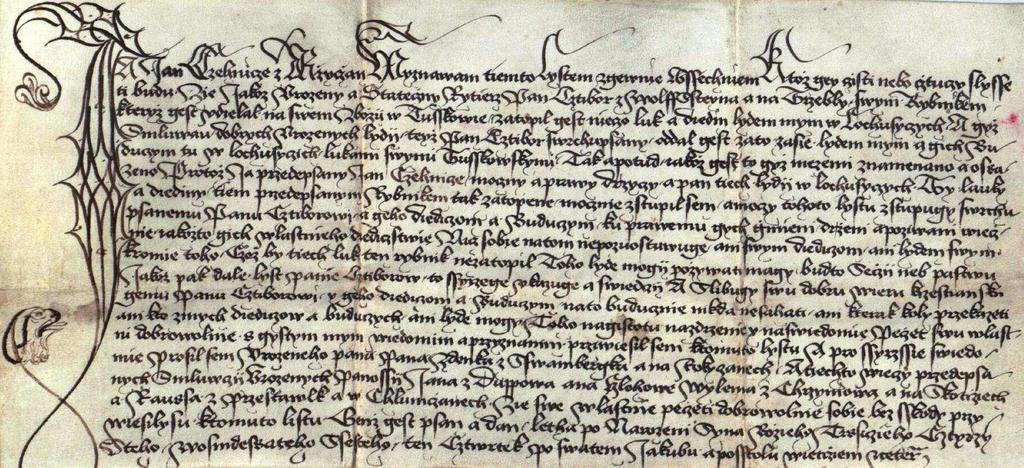 Ja Jan Czehnicze z Mžyczan Wyznawam tiemto lystem zgewnie wssechniem Ktoz gey czisti nebo cztuczy slysse
ti budu Zie Jakoz Vrozeny a Statečzny Rytierz Pan Cztibor z Wolffsteyna a na Trzebly swym Rybnikem
kteryz gest vdielal na swem zbozi w Tusskowie zatopil gest nieczo luk a diedin lydem mym w Lochusyczych A gyz
Smluwau dobrych Vrozenych lydij teyz Pan Cztibor swrchupsany oddal gest zato zasie lydem mym a gich Bu-
duczym tu w lochusyczich lukami swymi Tusskowskymi Tak apotud iakoz gest to gyz mezemi znamenano a osa-
zeno Protoz Ja przedepsany Jan Czehnicze moczny a prawy drzyczy a pan tiech lydij w lochusyczych Ty lauky
a diediny tiem przedepsanym Rybnikem tak zatopene mocznie zstupil sem a moczy tohoto lystu zstupugy swrchu
psanemu Panu Cztiborowi a geho diediczom a Buduczym ku prawemu gych gmieni drzeni a pozywani wiecz-
nie iakozto gich wlastnieho diediczstwie Nicz sobie natom nepozuostawuge ani swym diediczom ani lydem swym
kromie toho Czoz by tiech luk ten rybnik nezatopil Toho lyde mogij pozywati magy budto Seczij neb pastwu
Jakoz pak dale lyst panie Cztiborow to ssyrzege vkazuge a swiedczij A Slibugy swu dobru wieru krzestiansku
gemu Panu Cztiborowi y geho diediczom a Buduczym nato buducznie nikda nesahati ani kterak koly przekazeti
ani kto z mych diediczow a buduczych ani lyde mogy Toho nagistotu nazdrzenie y naswiedomie Peczet swu wlast-
ni dobrowolnie s gystym mym wiedomim a przyznanim przywiesil sem ktomuto lystu A pro ssyrzssie swiedo-
mie Prosil sem Vrozeneho pana pana Zdenka z Sswamberka a na Kokyzanech A tiechto wieczy przedepsa
nych Smluwczij Vrozenych Panossij Jana z Duppowa a na Hlohowe Wylema z Chrzymiowa a na Skotrzech
a Raussa z Przestawlk a w Chlumczanech Zie swe wlastnie peczeti dobrowolnie sobie bez sskody przy
wiesily su ktomuto listu Genz gest psan a dan letha po Narozeni Syna Bozieho Tisiczieho Cztyrzy
Steho wosmdesateho Ssesteho ten Cztwrtek po swatem Jakubu apposstolu wietcziem etc